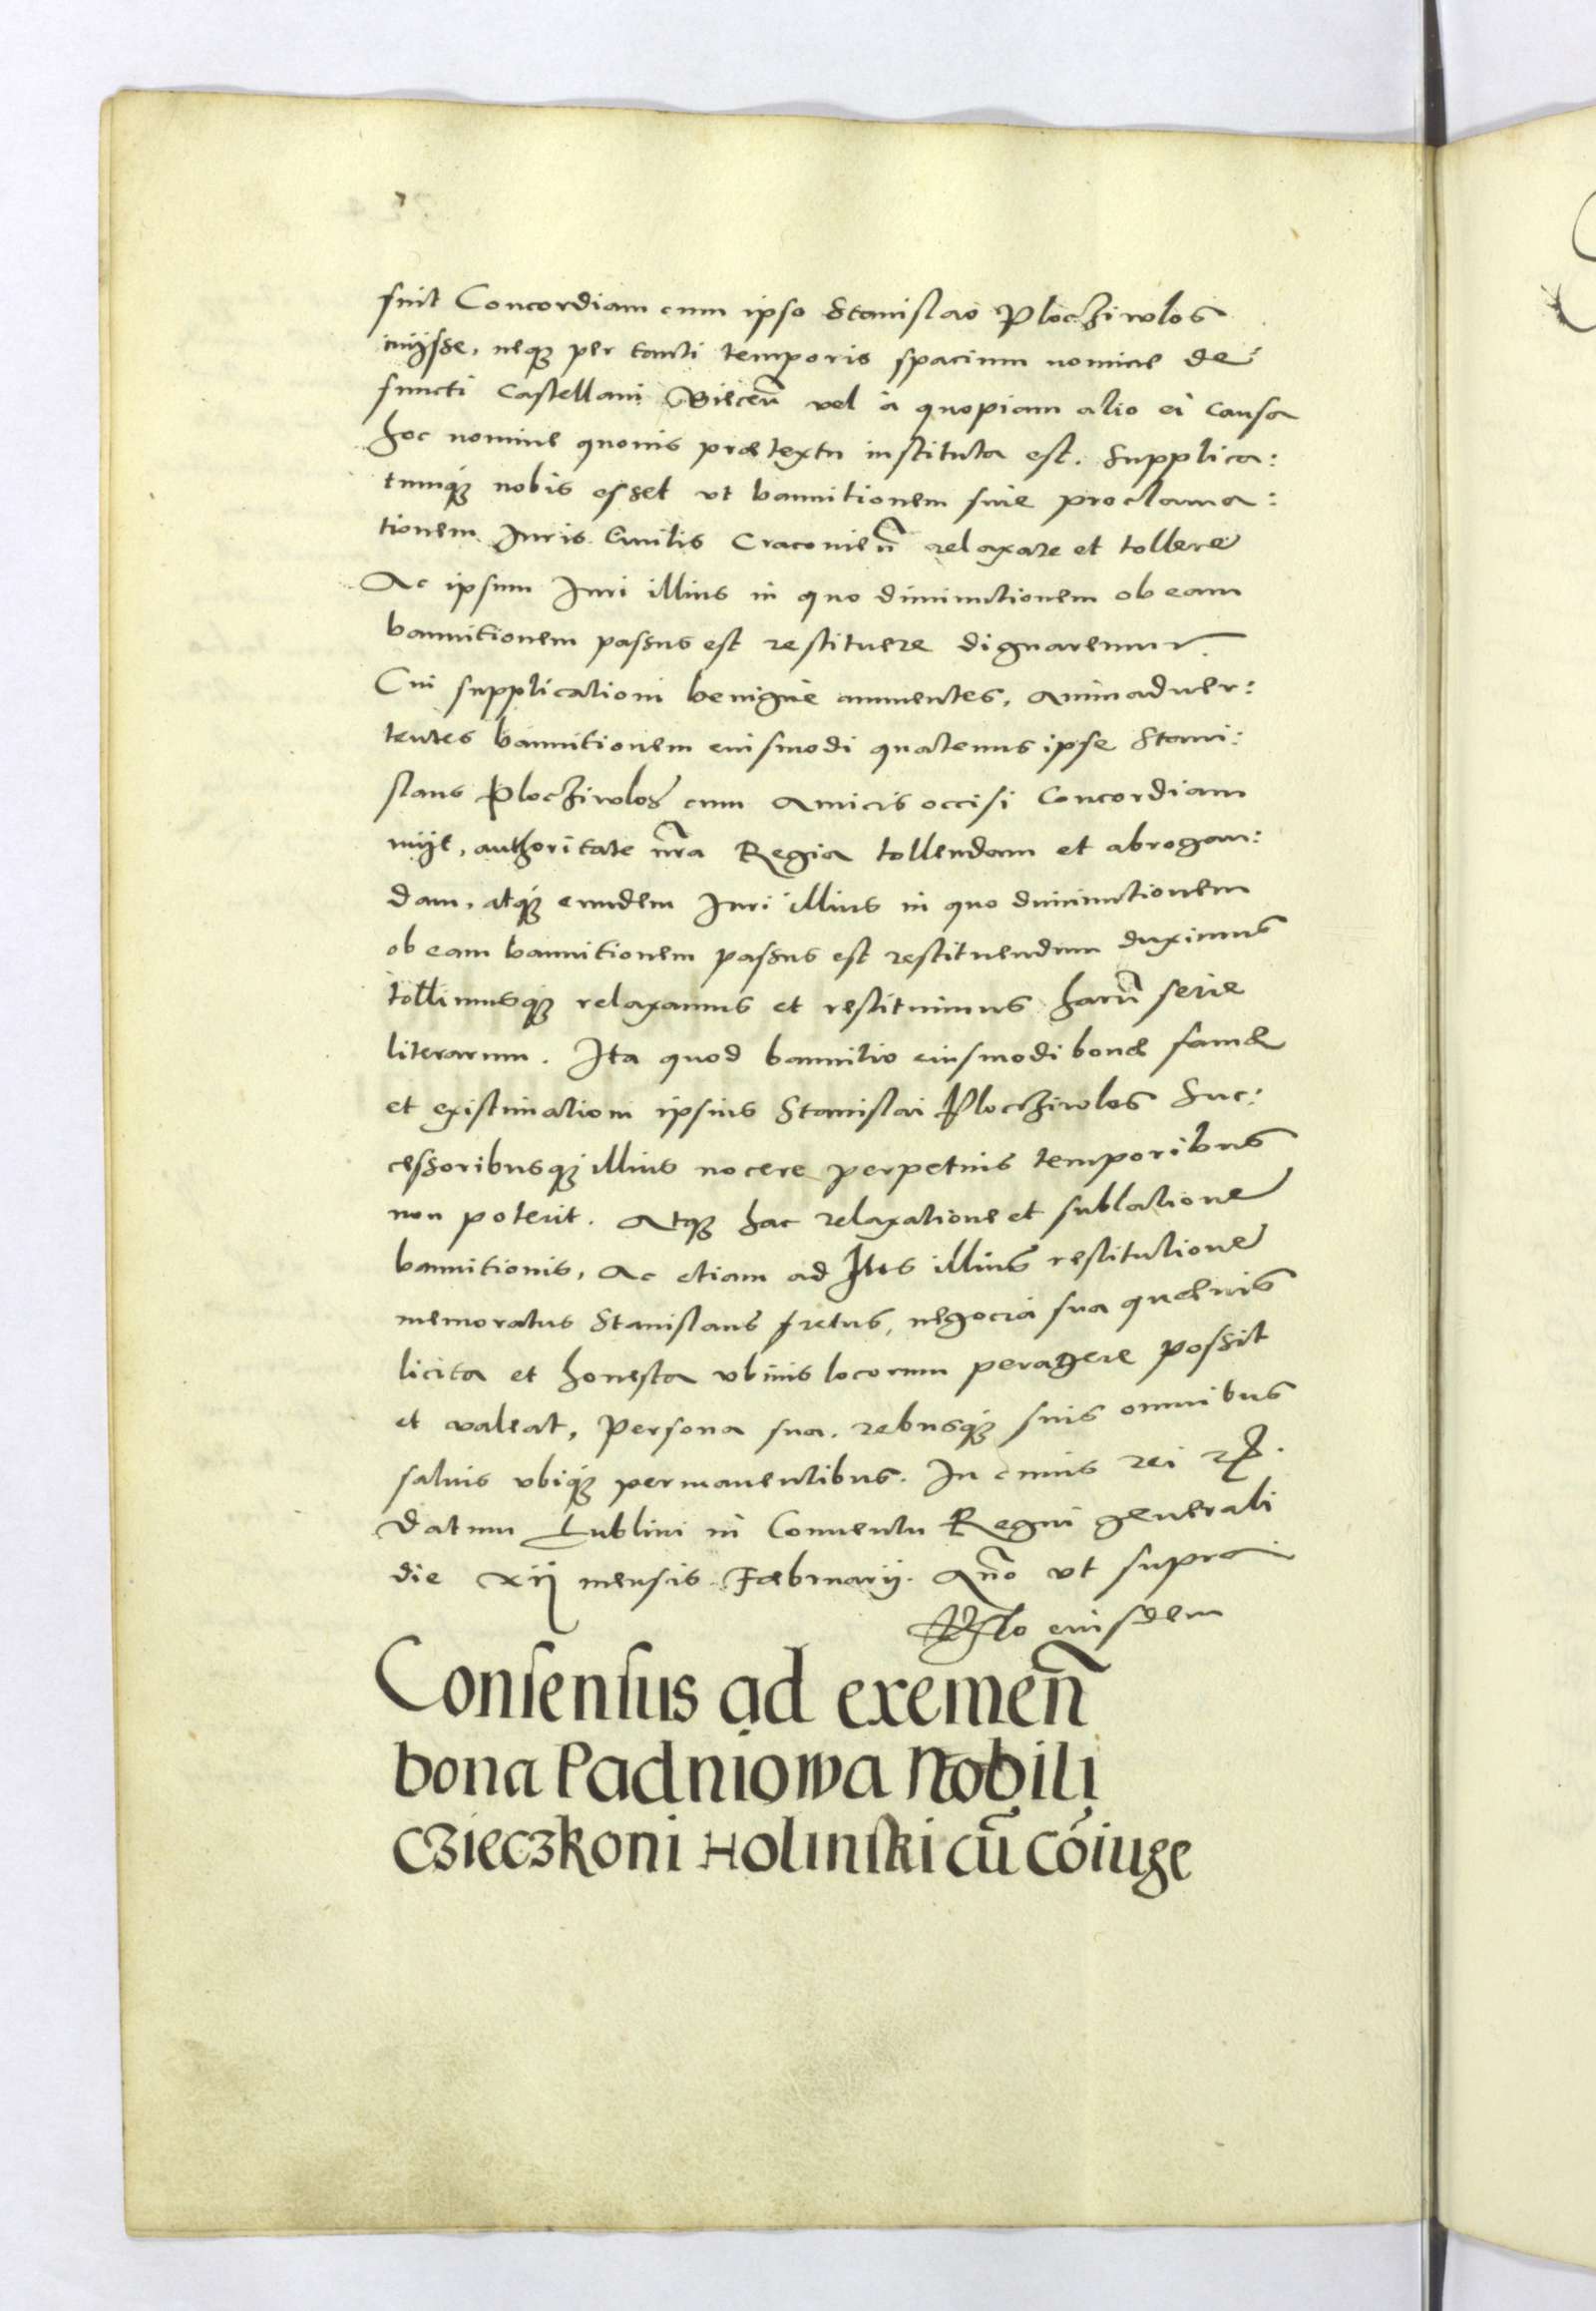 suit Concordiam cum ipso Stanislao Plochiwlos
inijsse, neq₃ per tanti temporis spacium nomine de⸗
functi Castellani Biecen̄ vel à quopiam alio ei causa
hoc nomine quouis prætextu instituta est. Supplica:
tumq₃ nobis esset vt bannitionem siue proclama:
tionem Iuris Ciuilis Cracouien̄ relaxare et tollere
Ac ipsum Iuri illius in quo diminutionem ob eam
bannitionem passus est restituere dignaremur.
Cui supplicationi benigne annuentes, Animaduer:
tentes bannitionem eiusmodi quatenus ipse Stani:
slaus Plochiwlos cum Amicis occisi Concordiam
inijt, authoritate nr̄a Regia tollendam et abrogan:
dam, atq₃ eundem Iuri illius in quo diminutionem
ob eam bannitionem passus est restituendum duximus
tollimusq₃ relaxamus et restituimus harū serie
literarum. Ita quod bannitio eiusmodi bonæ famæ
et existimationi ipsius Stanislai Plochiwlos Suc:
cessoribusq₃ illius nocere perpetuis temporibus
non poterit. Atq₃ hac relaxatione et sublatione
bannitionis, Ac etiam ad Ius illius restitutione
memoratus Stanislaus fretus, negocia sua quæuis
licita et honesta vbiuis locorum peragere possit
et valeat, Persona sua, rebusq₃ suis omnibus
saluis vbiq₃ permanentibus. In cuius rei
Datum Lublini in Conuentu Regni generali
die xij mensis Fæbruarij. An̄o vt supra
eiusdem
Consensus ad exemen̄
bona Padniowa Nobili
Czieczkoni Holinski cū cōiuge